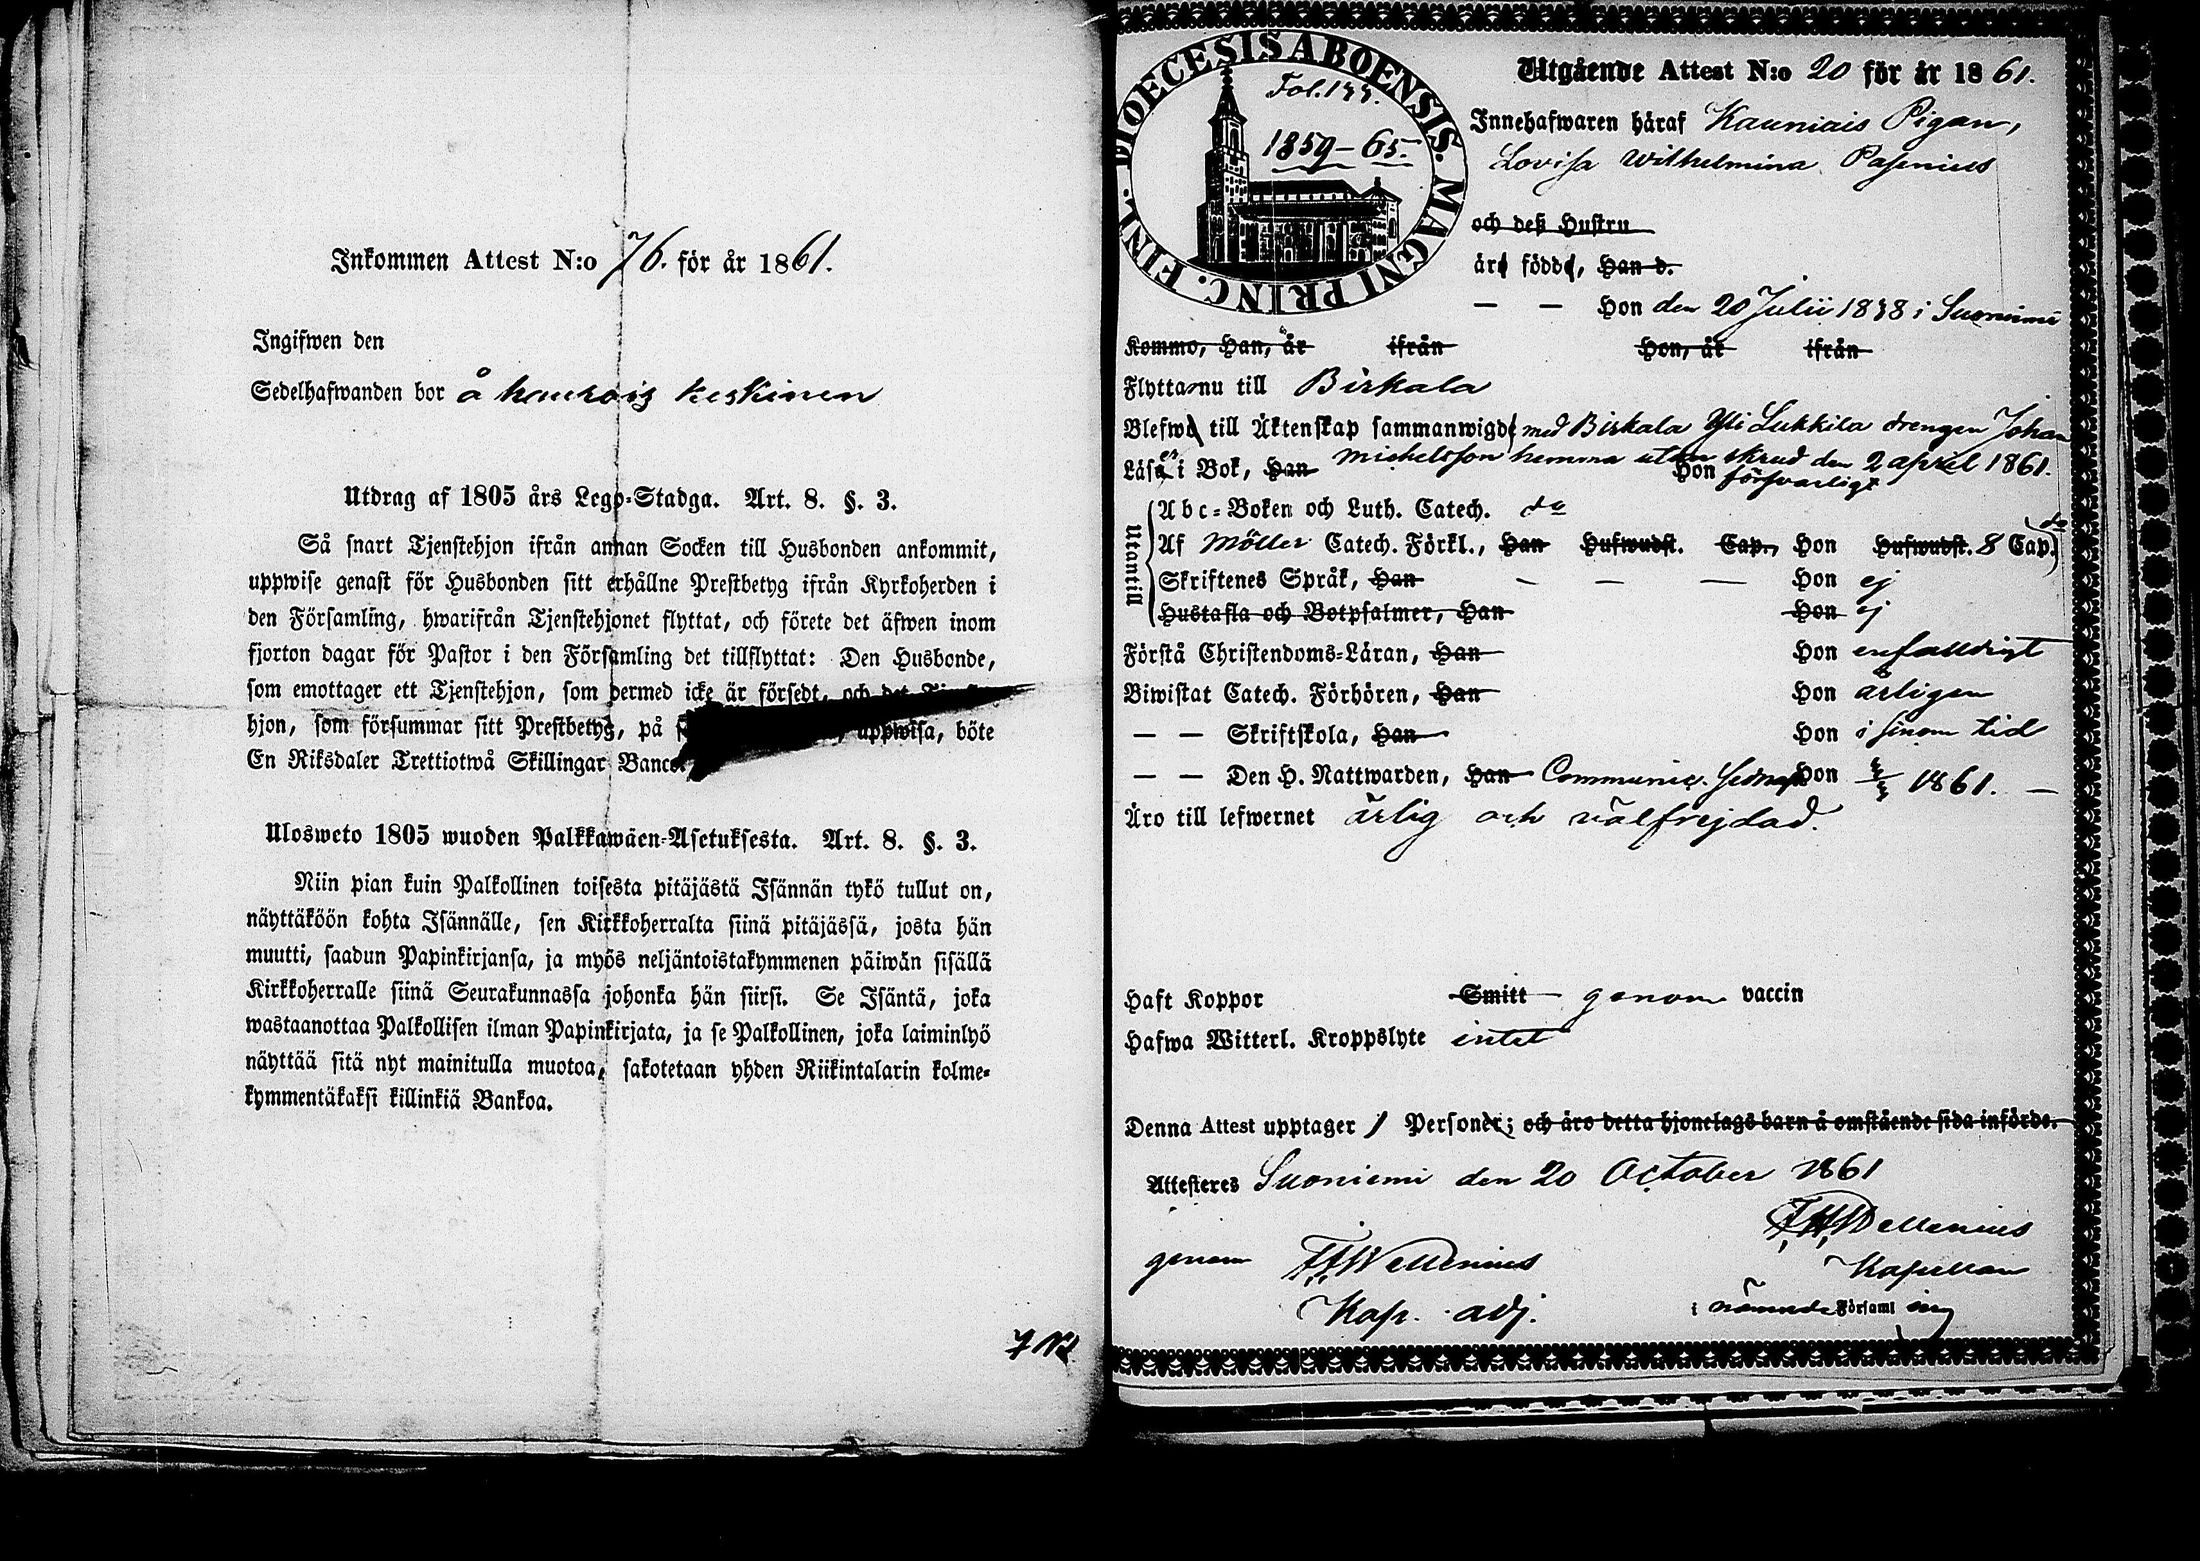 Inkommen Attest N:o 76. för år 1861.
Ingifwen den
Sedelhafwanden bor å keskinen
Utdrag af 1805 års Lego-Stadga. Art. 8. §. 3.
Så snart Tjenstehjon ifrån annan Socken till Husbonden ankommit,
uppwise genast för Husbonden sitt erhållne Prestbetyg ifrån Kyrkoherden i
den Församling, hwarifrån Tjenstehjonet flyttat, och förete det äfwen inom
fjorton dagar för Pastor i den Församling det tillflyttat: Den Husbonde,
som emottager ett Tjenstehjon, som dermed icke är försedt, och det
hjon, som försummar sitt Prestbetyg, på uppwisa, böte
En Riksdaler Trettiotwå Skillingar Banco
Ulosweto 1805 wuoden Palkkawäen-Asetuksesta. Art. 8. §. 3.
Niin pian kuin Palkollinen toisesta pitäjästä Isännän tykö tullut on,
näyttäköön kohta Isännälle, sen Kirkkoherralta siinä pitäjässä, josta hän
muutti, saadun Papinkirjansa, ja myös neljäntoistakymmenen päiwän sisällä
Kirkkoherralle siinä Seurakunnassa johonka hän siirsi. Se Isäntä, joka
wastaanottaa Palkollisen ilman Papinkirjata, ja se Palkollinen, joka laiminlyö
näyttää sitä nyt mainitulla muotoa, sakotetaan yhden Riikintalarin kolme-
kymmentäkaksi killinkiä Bankoa.
DIOECESIS ABOENSIS. MAGNI PRINC. FINL.
Fol. 133.
1859-65.
Utgående Attest N:o 20 för år 1861.
Innehafwaren häraf Kauniais Pigan,
Lovisa Wilhelmina Pasenius
och deß Hustru
är födde, Han d.
— — Hon den 20 Julii 1838 i Suoniemi
Kommo, Han, år ifrån Hon, år ifrån
Flytta nu till Birkala
Blefwe till Äktenskap sammanwigde med Birkala Yli Lukkila drengen Johan
Michelsson hemma utan skrud den 2 april 1861.
Läsa i Bok, Han Hon försvarligt
Utantill
Abc-Boken och Luth. Catech. do
Af Möller Catech. Förkl., Han Hufwudst. Cap., Hon Hufwudst. 8 Cap. do
Skriftenes Språk, Han — — — Hon ej
Hustafla och Botpsalmer, Han Hon ej
Förstå Christendoms-Läran, Han Hon enfalldigt
Biwistat Catech. Förhören, Han Hon årligen
— — Skriftskola, Han Hon i sinom tid
— — Den H. Nattwarden, Han Communic. Hon 1861. —
Äro till lefwernet ärlig och välfrejdad.
Haft Koppor Smitt genom vaccin
Hafwa Witterl. Kroppslyte intet
Denna Attest upptager 1 Personer; och äro detta hjonelags barn å omstående sida införde.
Attesteres Suoniemi den 20 October 1861
Wellenius
genom Wellenius Kapellan
Kap. adj. i nämnde Församling